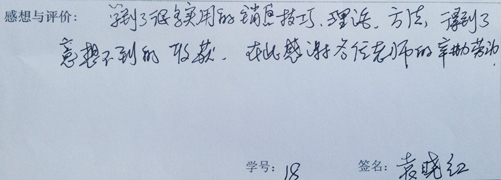 感想与评价: 学到了很多实用的销售技巧、理论、方法,得到了
意想不到的收获。在此感谢各位老师的辛勤劳动
学号: 18 签名: 袁晓红